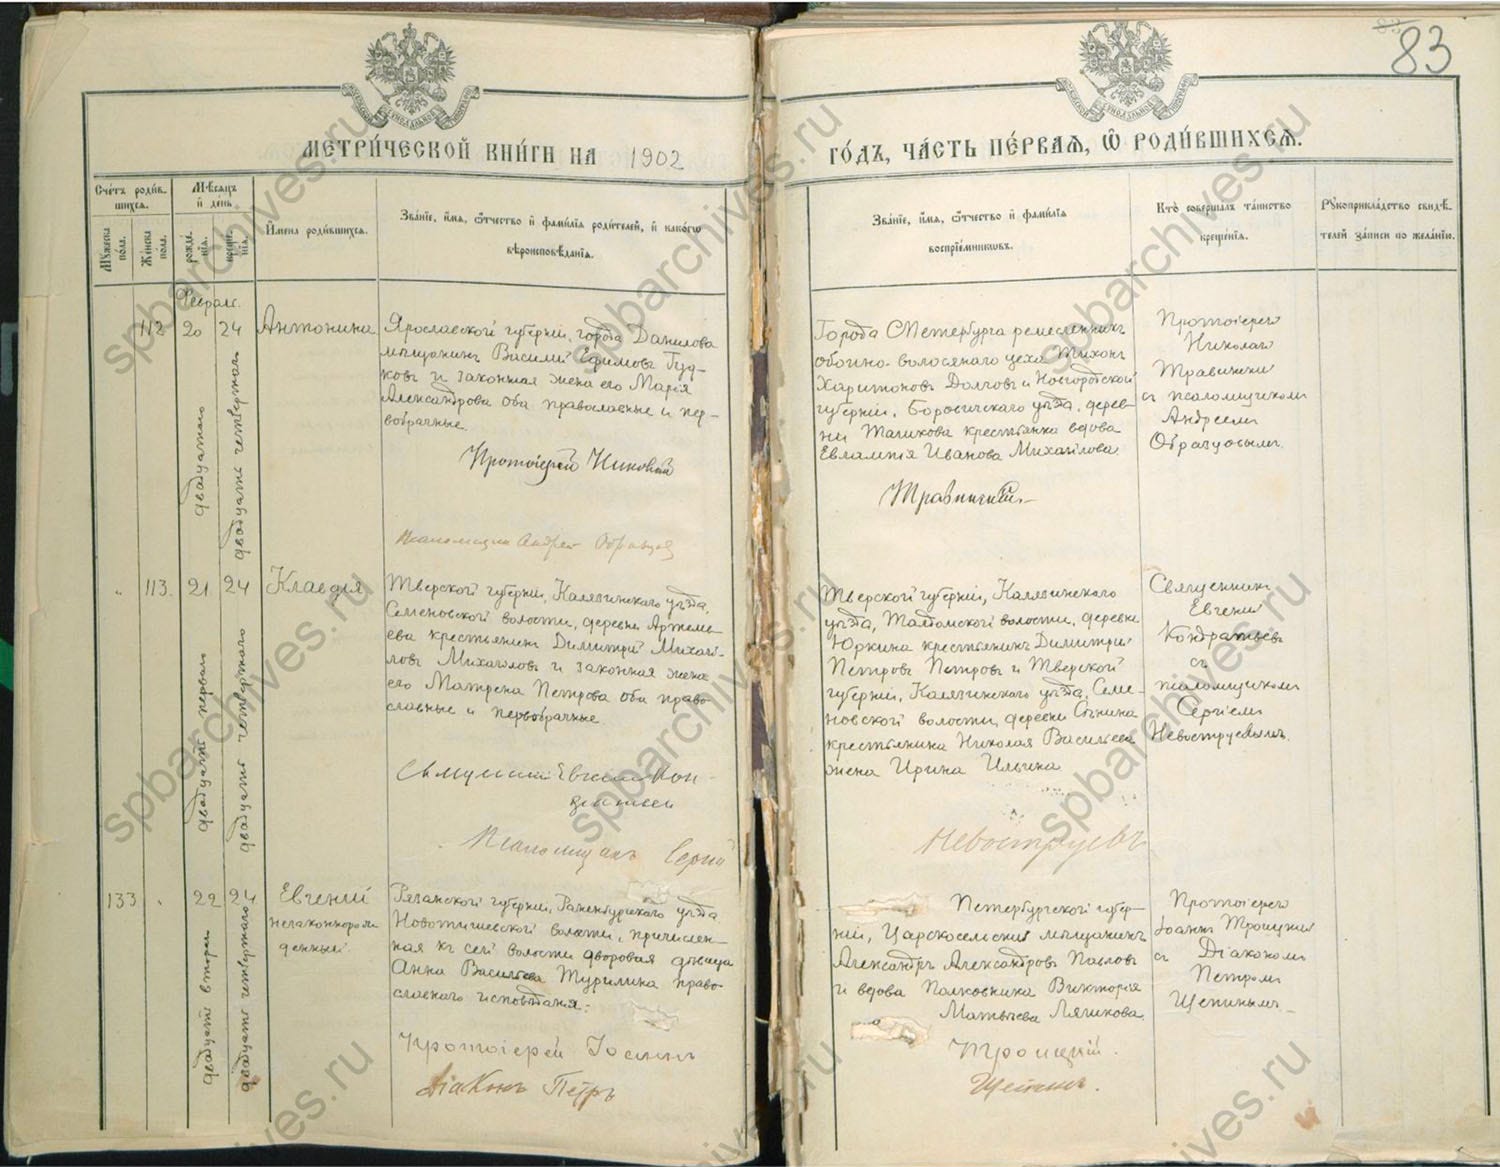 83
МЕТРИ́ЧЕСКОЙ КНИ́ГИ НА 1902
ГО́ДЪ, ЧА́СТЬ ПЕ́РВАЯ, Ѽ РОДИ́ВШИХСЯ.
Сче́тъ роди́в-
шихся.
Му́жеска
по́ла.
Же́нска
по́ла.
Мѣ́сяцъ
и҆ де́нь
рожде́-
нїя.
креще́-
нїя.
И҆мена роди́вшихся.
Зва́нїе, и҆́мя, ѻ҆́тчество и҆ фами́лїя роди́телей, и҆ како́гѡ
вѣроисповѣ́данїя.
Зва́нїе, и҆́мя, ѻ҆́тчество и҆ фами́лїя
воспрїе́мниковъ.
Кто̀ соверша́лъ та́инство
креще́нїя.
Рꙋкоприкла́дство свидѣ́-
телей за́писи по жела́нїю.
Февраль.
112
20
24
двадцатаго
двадцать четвертаго
Антонина
Ярославской губерніи, города Данилова
мѣщанинъ Василій Ефимовъ Гуд-
ковъ и законная жена его Марія
Александрова оба православные и пер-
вобрачные.
Протоіерей Николай
Псаломщик Андрей Образцов
Города СПетербурга ремесленникъ
обойно-волосянаго цеха Тихонъ
Харитоновъ Долговъ и Новгородской
губерніи, Боровичскаго уѣзда, дерев-
ни крестьянка вдова
Евлампія Иванова Михайлова
Травинскій.
Протоіерей
Николай
Травинскій
съ псаломщикомъ
Андреемъ
Образцовымъ.
113.
21
24
двадцать перваго
двадцать четвертаго
Клавдія
Тверской губерніи, Калязинскаго уѣзда,
Семеновской волости, деревни Артемь-
ева крестьянинъ Димитрій Михай-
ловъ Михайловъ и законная жена
его Матрена Петрова оба право-
славные и первобрачные.
Священникъ Евгеній Кон-
дратьев
Псаломщикъ Сергій
Тверской губерніи, Калязинскаго
уѣзда, Талдомской волости, деревни
Юркина крестьянинъ Димитрій
Петровъ Петровъ и Тверской
губерніи, Калязинскаго уѣзда, Семе-
новской волости, деревни
крестьянина Николая Васильева
жена Ирина Ильина
Невоструевъ
Священникъ
Евгеній
Кондратьевъ
съ
псаломщикомъ
Сергіемъ
Невоструевымъ.
133
22
24
двадцать втораго
двадцать четвертаго
Евгеній
незаконнорож
денный.
Рязанской губерніи, Раненбургскаго уѣзда
Новотишевской волости, причислен-
ная къ сей волости дворовая дѣвица
Анна Васильева Турилина право-
славнаго исповѣданія.
Протоіерей Іоаннъ
Діаконъ Петръ
Петербургской губер-
ніи, Царскосельскій мѣщанинъ
Александръ Александровъ Павловъ
и вдова Полковника Викторія
Матвѣева Ляшкова.
Троицкій.
Щепинъ.
Протоіерей
Іоаннъ Троицкій
съ Діакономъ
Петромъ
Щепинымъ.
spbarchives.ru
spbarchives.ru
spbarchives.ru
spbarchives.ru
spbarchives.ru
spbarchives.ru